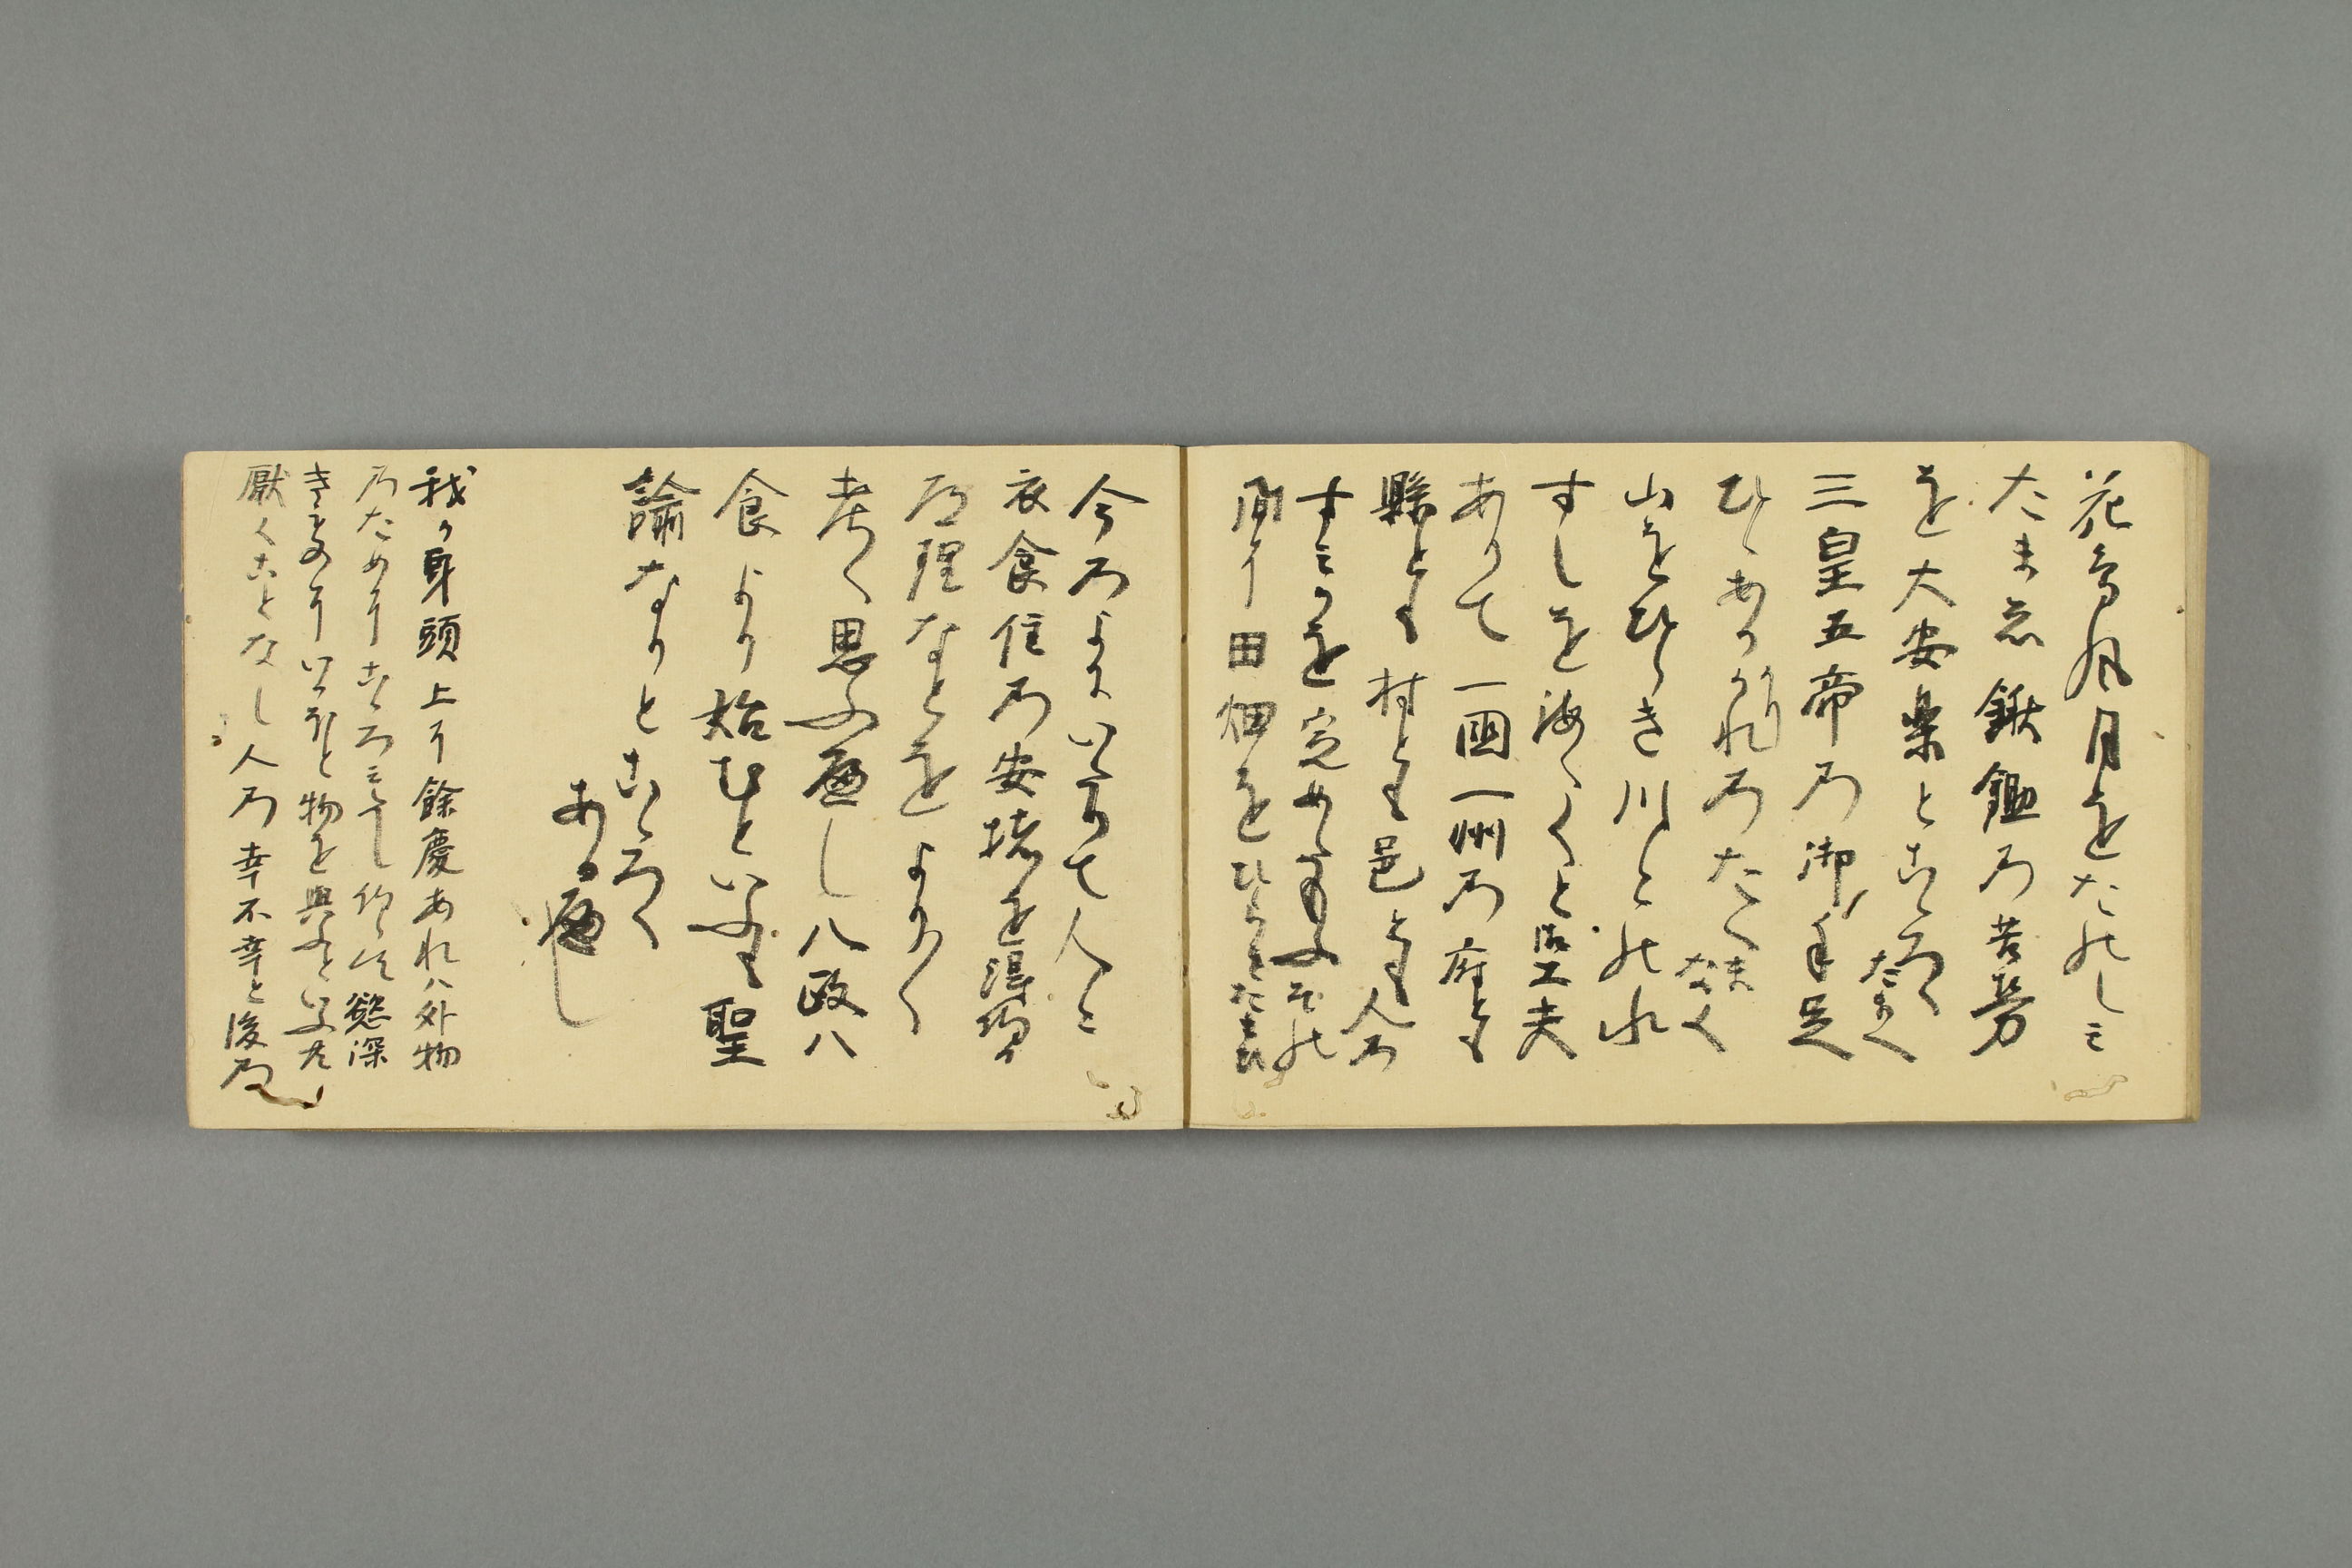 花鳥風月をたのしミ
たまふ鍬鋤乃苦労
を大安楽とこゝろへ
たまへ
三皇五帝乃御手足
ひゝあかぎれ乃たへま
なく
山をひらき川とのみ
すしを海へと工夫
ありて一国一州乃府とも
縣とも村とも邑とも人乃
すミかを定めその
間に田畑をひらきたまひ
今乃よにいたりて人々
衣食住乃安堵を得
道理なとをよく〳〵
考へ思ふ遍し八政ハ
食より始むといふも聖
論なりとこゝろへ
ある遍し
我か身頭上に餘慶あれハ外物
乃ために
慾深
きものにいかほと物を與ふといふ共
厭くことなし人乃幸不幸と後乃